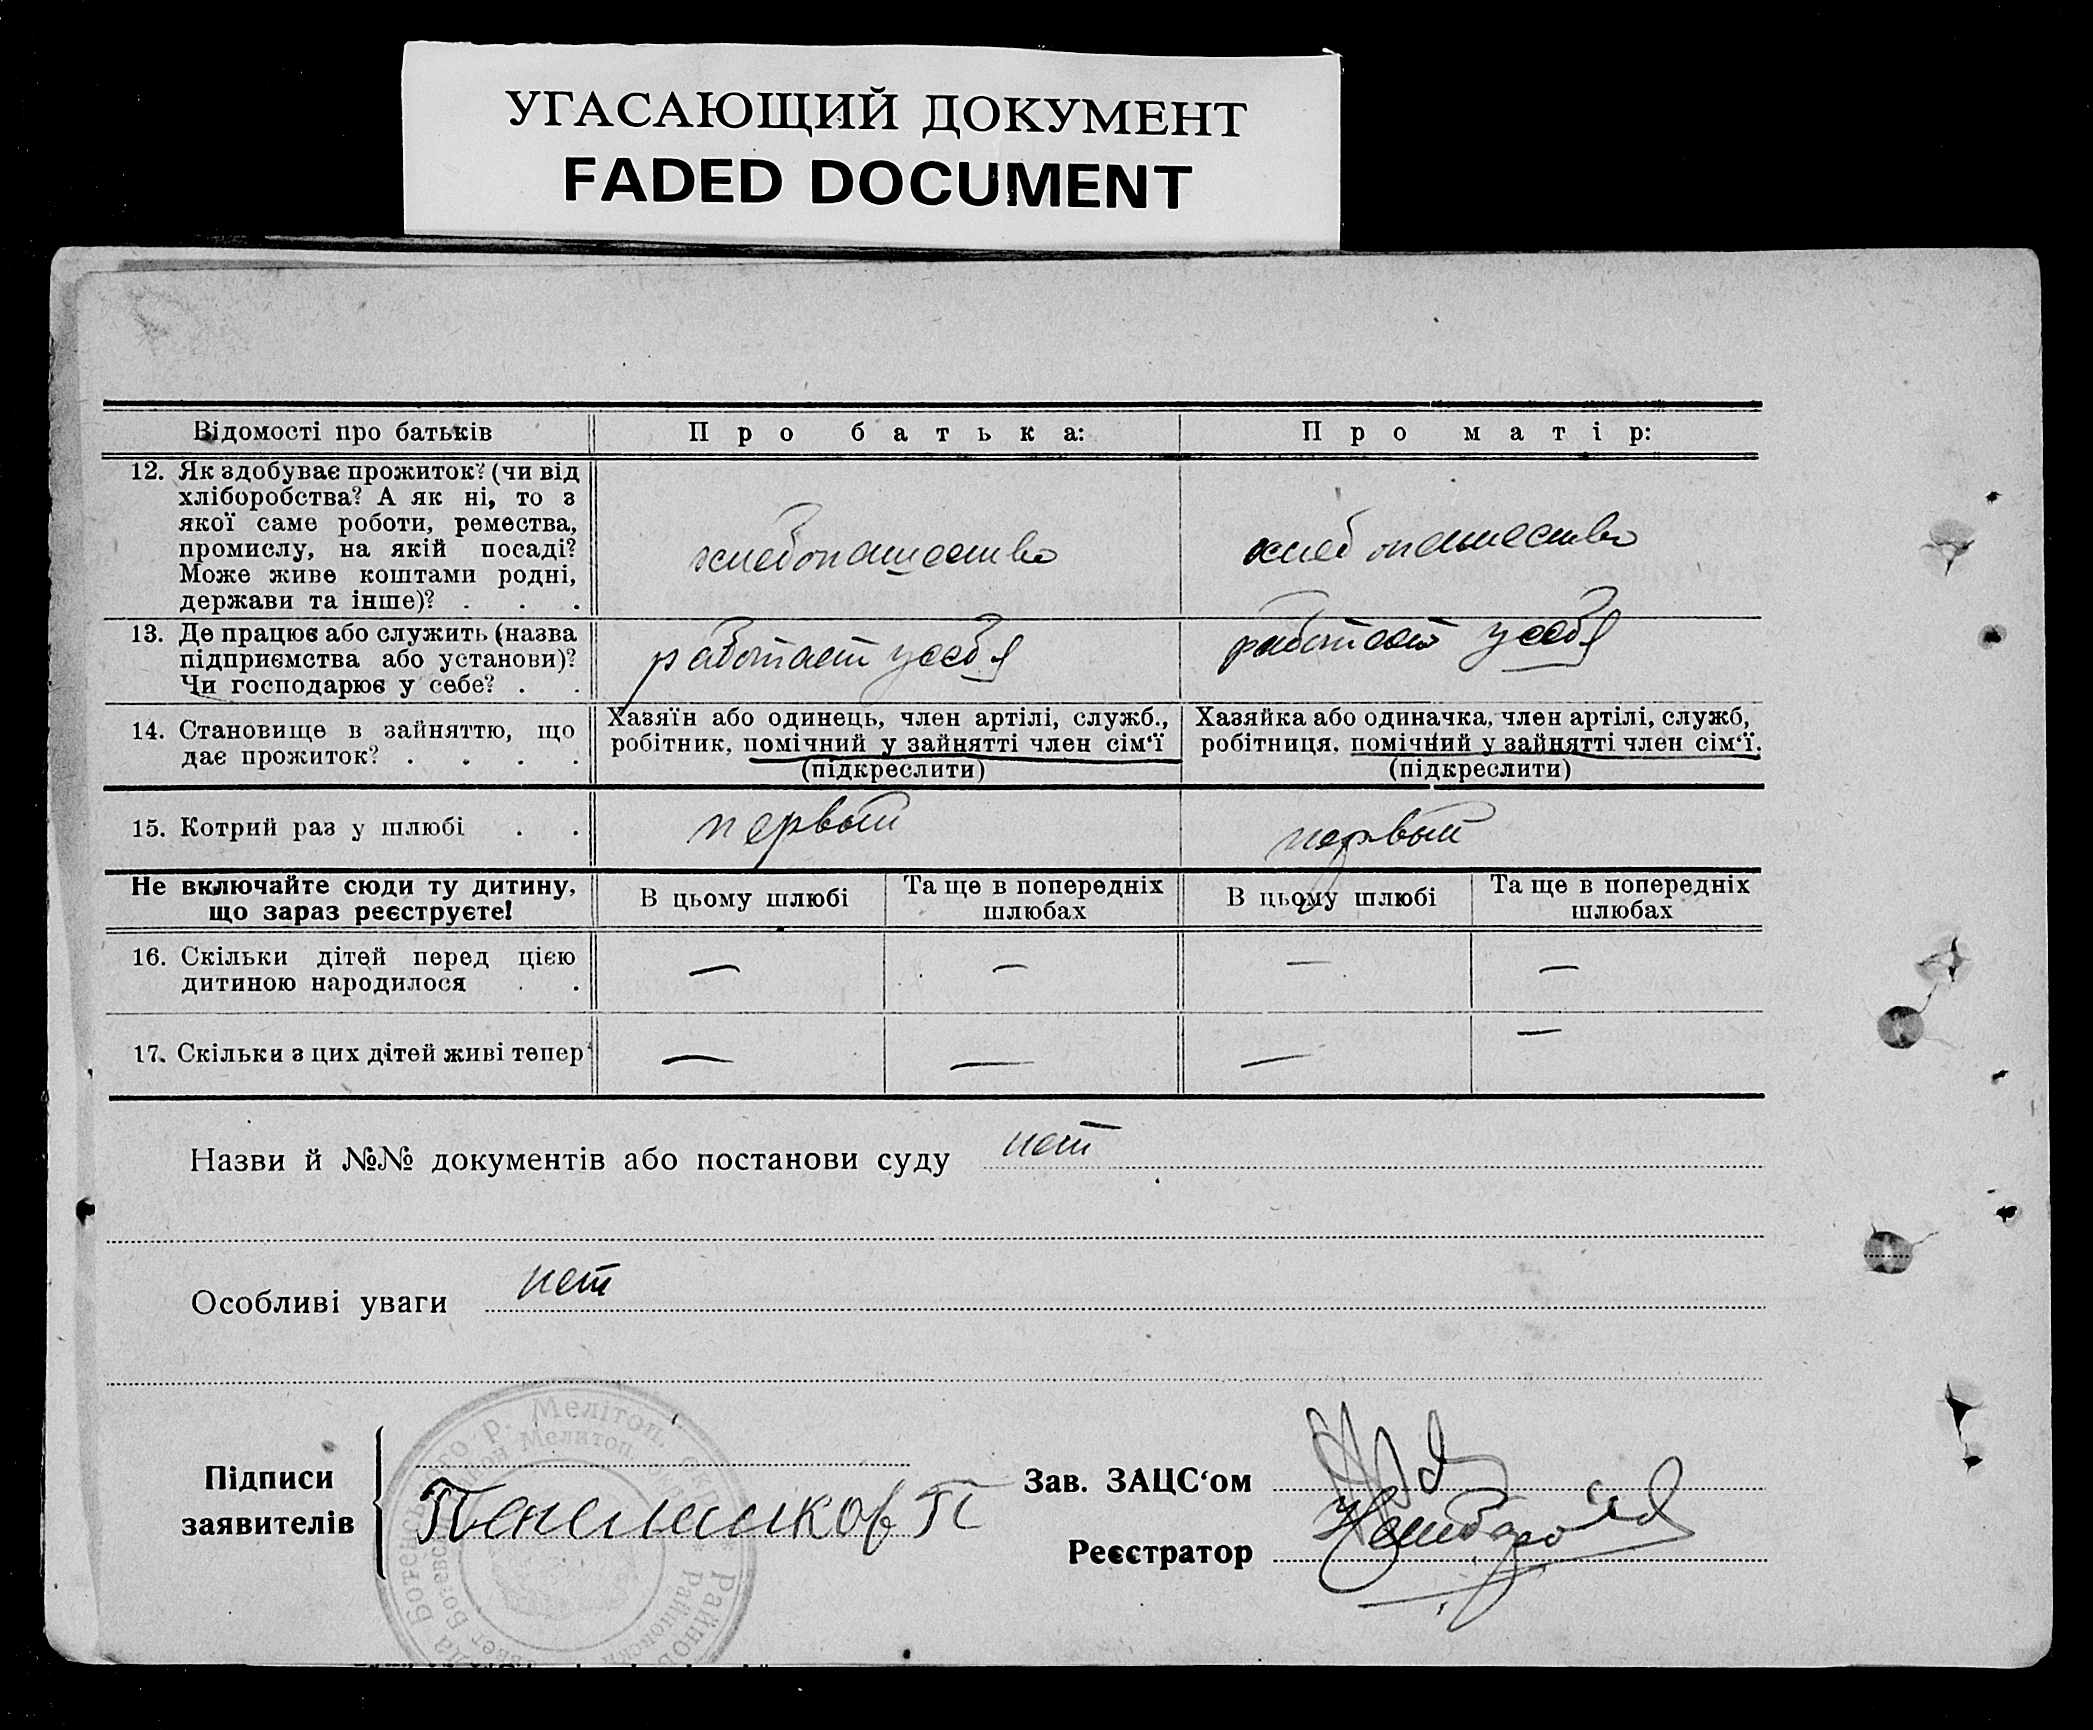 УГАСАЮЩИЙ ДОКУМЕНТ
FADED DOCUMENT
Відомості про батьків
Про батька:
Про матір:
12. Як здобуває прожиток? (чи від
хліборобства? А як ні, то з
якої саме роботи, ремества,
промислу, на якій посаді?
Може живе коштами родні,
держави та інше)? . . .
хлебопашество
хлебопашество
13. Де працює або служить (назва
підприємства або установи)?
Чи господарює у себе? . .
работает у себя
работает у себя
14. Становище в зайняттю, що
дає прожиток? . . . .
Хазяїн або одинець, член артілі, служб.,
робітник, помічний у зайнятті член сім'ї
(підкреслити)
Хазяйка або одиначка, член артілі, служб,
робітниця, помічний у зайнятті член сім'ї.
(підкреслити)
15. Котрий раз у шлюбі . .
первый
первый
Не включайте сюди ту дитину,
що зараз реєструєте!
В цьому шлюбі
Та ще в попередніх
шлюбах
В цьому шлюбі
Та ще в попередніх
шлюбах
16. Скільки дітей перед цією
дитиною народилося . .
— — — —
17. Скільки з цих дітей живі тепер
— — — —
Назви й №№ документів або постанови суду нет
Особливі уваги нет
Підписи
заявителів
Зав. ЗАЦС'ом
Реєстратор